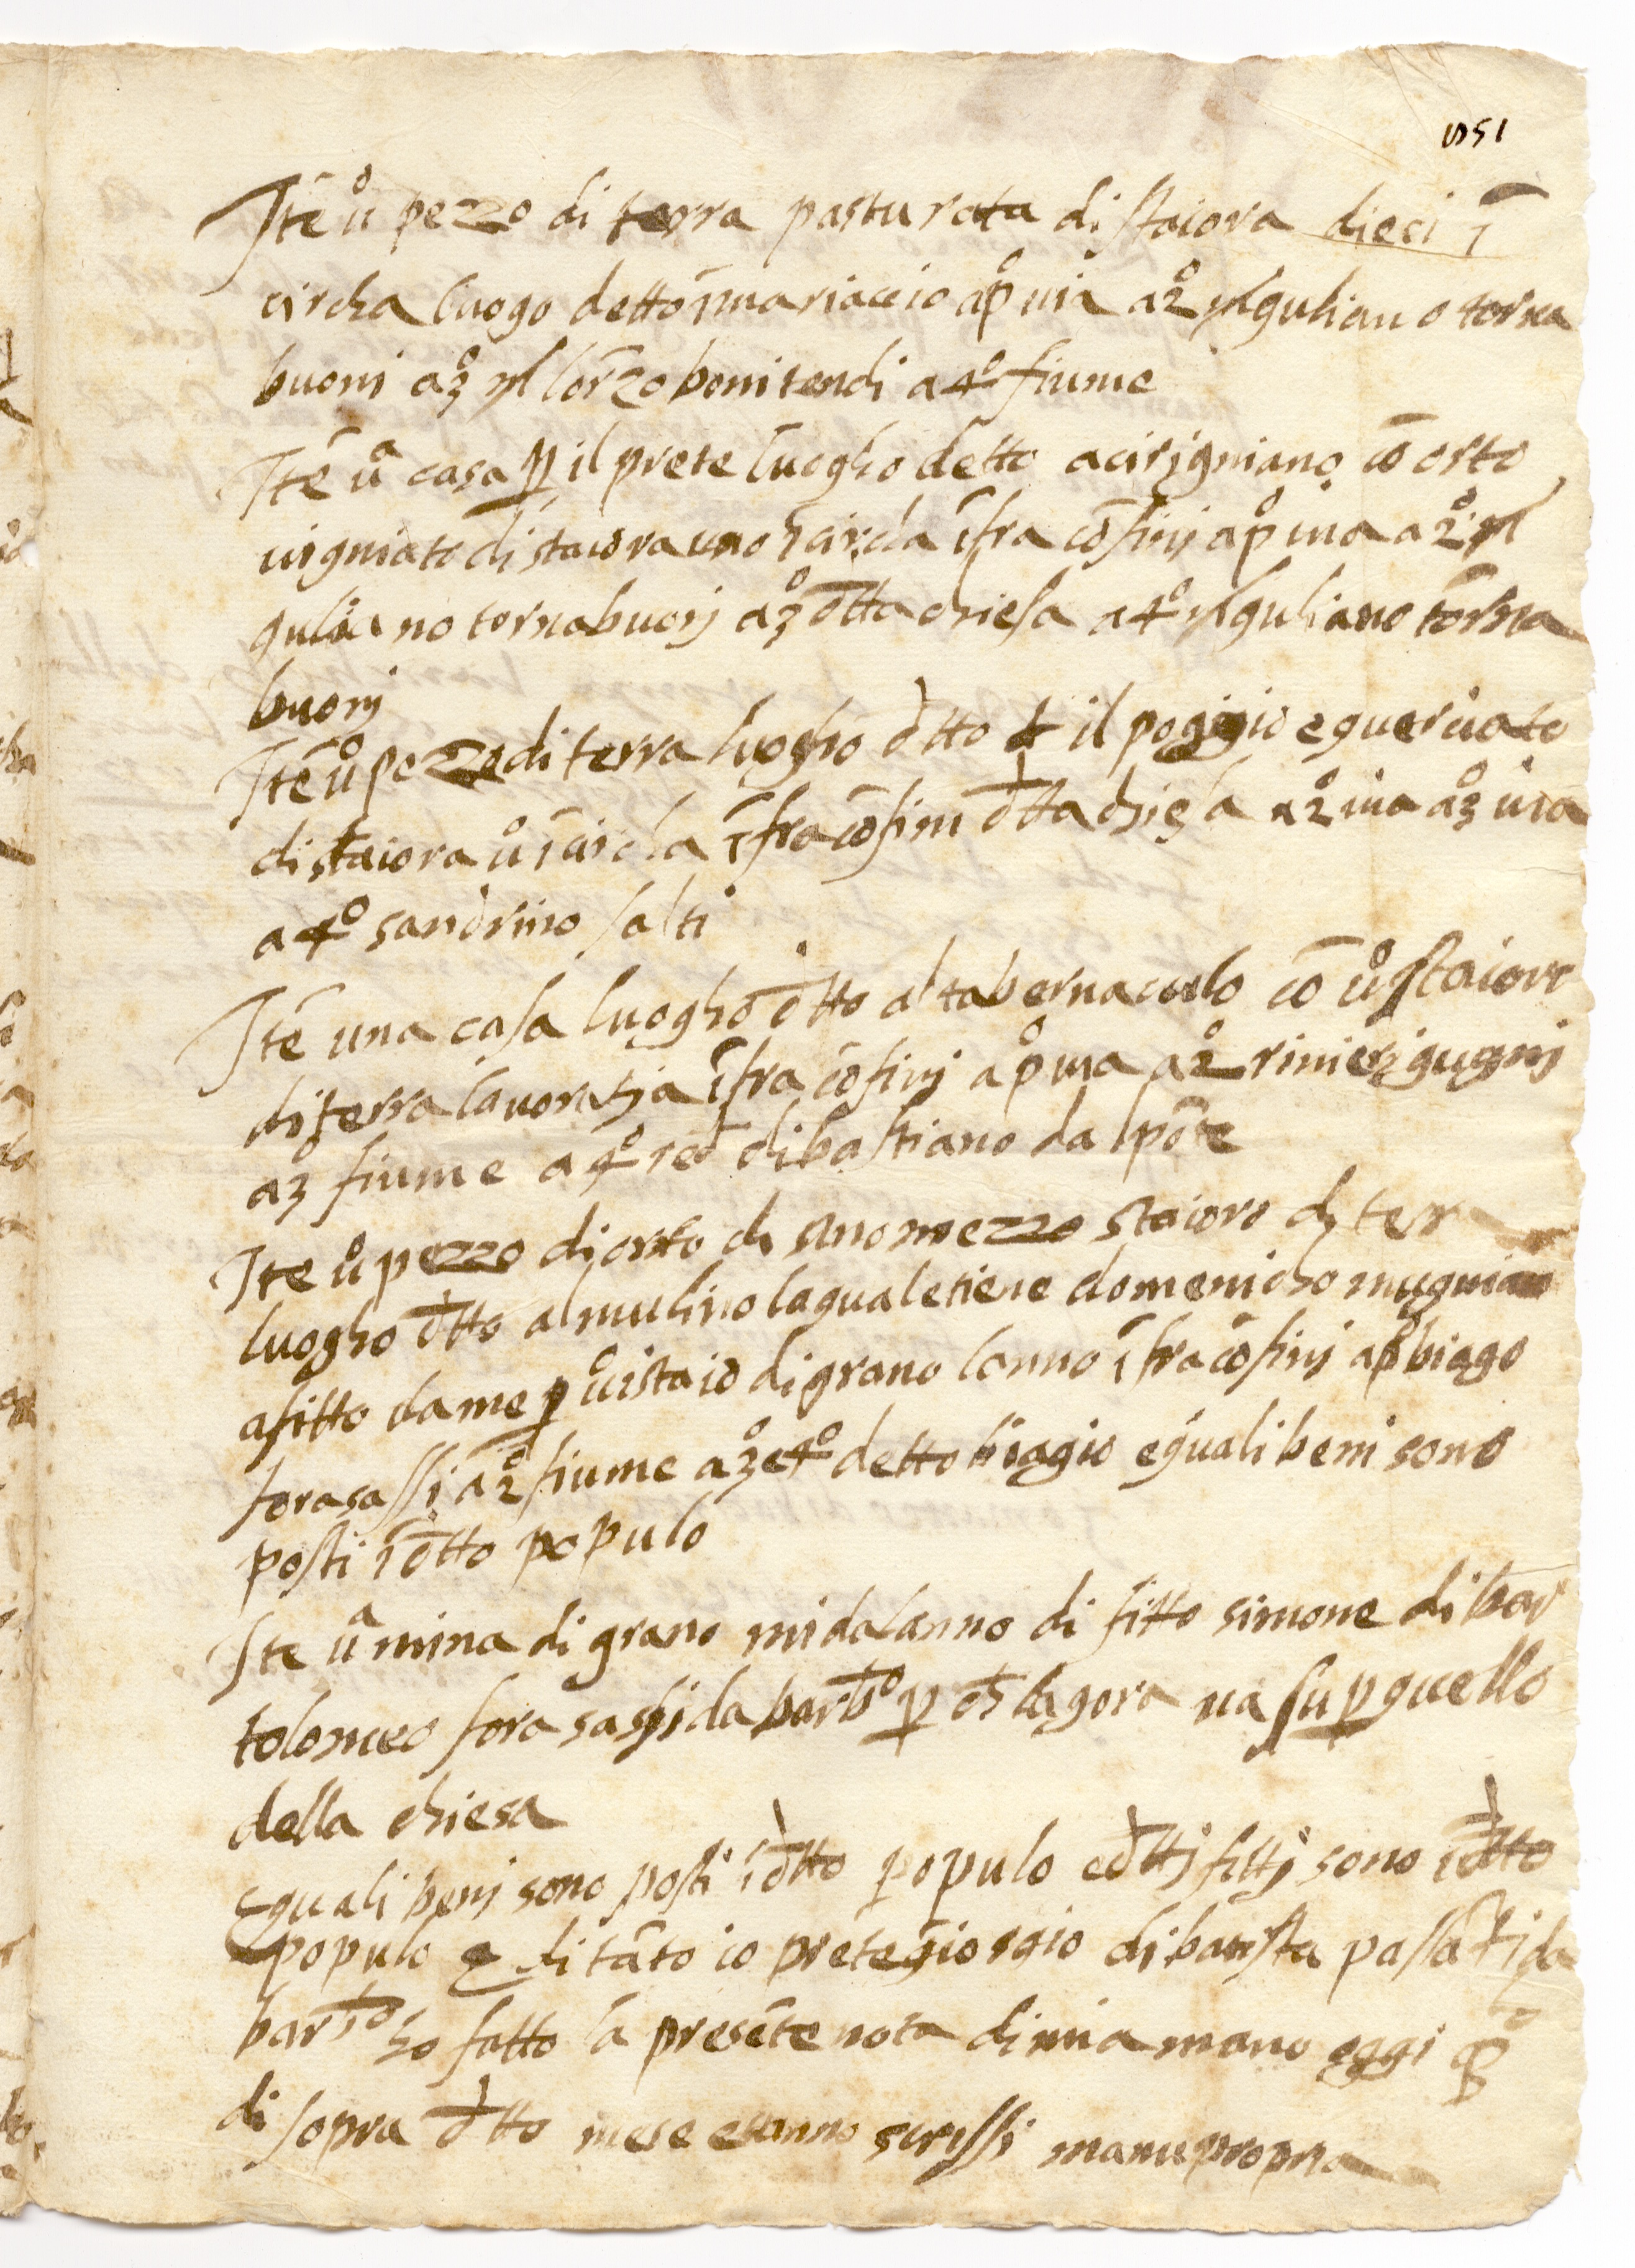 1551
Itē ů pezzo di terra pasturata di staiora dieci ī
circha luogo detto ī mariaccio a pº via a 2º ml guliano torna
buoni a 3º ml lorēzo bonitendi a 4º fiume
Itē ůa casa ꝑ il prete luogho detto a cirigniano cō orto
vigniato di staiora uno ī circha īfra cōfinj a pº via a 2º ml
guliano tornabuonj a 3º dtta chiesa a 4º ml guliano torna
buonj
Itē ů pezzo di terra luogho dtto il poggio e querciato
di staiora ů ī circha īfra cōfini dtta chiesa a 2º via a 3º via
a 4º sandrino salti
Itē una casa luogho dtto al tabernaculo cō ů staioro
di terra lavoratja īfra cōfinj a pº via a 2º rinierj gugnj
a 3º fiume a 4º red di bastiano dal pōte
Ite ů pezzo dj orto di uno mezzo staioro dj ter
luogho dtto al mulino la quale tiene domenicho mugniaio
a fitto da me ꝑ ůi staio di grano lanno īfra cōfinj a pº biago
forasassi a 2º fiume a 3º e 4º detto biagio e quali beni sono
posti ī dtto populo
Ite ůa mina di grano mi da lanno di fitto simone di bar
tolomeo forasassi da barbº ꝑ ch la gora va su ꝑ quello
della chiesa
E quali benj sono posti ī dtto populo e dttj fittj sono ī dtto
populo e di tāto io prete giorgio di batista passātj da
barbº ho fatto la presēte nota di mia mano oggi qº dº
di sopra dtto mese et anno scrissi manu propria